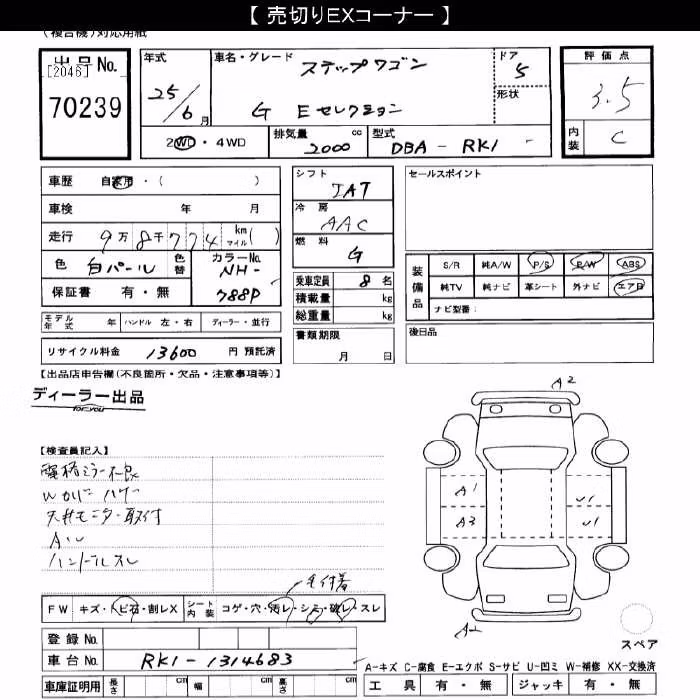 【 売切りEXコーナー 】
(複合機)対応用紙
出品No.
[2046]
70239
年式
25/6月
車名・グレード
ステップワゴン
G Eセレクション
ドア
5
形状
2WD・4WD
排気量
2000 cc
型式
DBA - RK1 -
評価点
3.5
内装
C
車歴 自家用・( )
車検 年 月
走行 9万8千774 km マイル( )
色 白パール 色替
カラーNo.
NH-788P
保証書 有・無
モデル年式 年 ハンドル 左・右 ディーラー・並行
リサイクル料金 13600 円 預託済
シフト
IAT
冷房
AAC
燃料
G
乗車定員 8名
積載量 kg
総重量 kg
書類期限
月 日
セールスポイント
装備品
S/R 純A/W P/S P/W ABS
純TV 純ナビ 革シート 外ナビ エアB
ナビ型番:
後日品
【出品店申告欄(不良箇所・欠品・注意事項等)】
ディーラー出品
for you
【検査員記入】
電格ミラー不良
Wカバー ハゲ
天井モニター取付
ハンドルスレ
毛付着
FW キズ・トビ石・割レX
シート内装 コゲ・穴・汚レ・シミ・破レ・スレ
登録No.
車台No. RK1-1314683
車庫証明用 長さ cm 幅 cm 高さ cm
A2
A1
A3
A2
スペア
A-キズ C-腐食 E-エクボ S-サビ U-凹ミ W-補修 XX-交換済
工具 有・無 ジャッキ 有・無